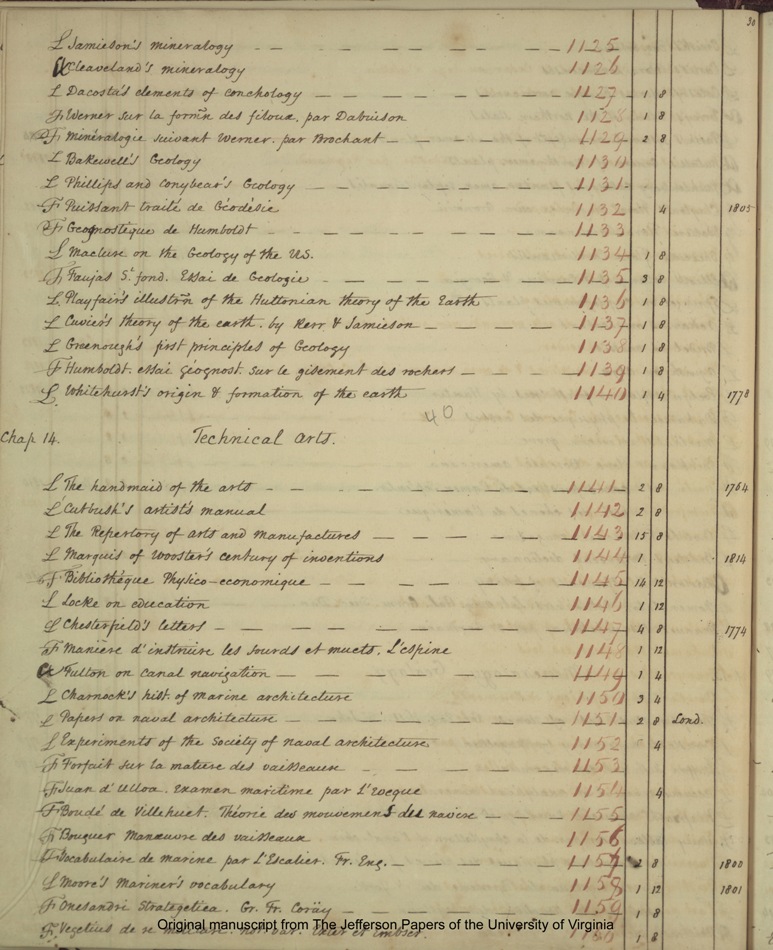 30
L Jamieson's mineralogy — — — 1125
A Cleaveland's mineralogy 1126
L Dacosta's elements of conchology — — — 1127 1 8
F Werner sur la formn des filoux. par Dabuison 1128 1 8
F Minéralogie suivant Werner. par Brochant — — — 1129 2 8
L Bakewell's Geology 1130
L Phillips and Conybear's Geology — — — 1131
F Puissant traité de Géodésie 1132 4 1805
F Geognosteque de Humboldt — — — 1133
L Maclure on the Geology of the U.S. 1134 1 8
F Faujas St. fond. Essai de Geologie — — — 1135 3 8
L Playfair's illustrn of the Huttonian theory of the Earth 1136 1 8
L Cuvier's theory of the earth. by Kerr & Jamieson — — — 1137 1 8
L Greenough's first principles of Geology 1138 1 8
F Humboldt. essai géognost. sur le gisement des rochers — — — 1139 1 8
L Whitehurst's origin & formation of the earth 1140 1 4 1778
40
Chap 14. Technical Arts.
L The handmaid of the arts — — — 1141 2 8 1764
L Cutbush's artist's manual 1142 2 8
L The Repertory of arts and manufactures — — — 1143 15 8
L Marquis of Wooster's century of inventions 1144 1 1814
F Bibliothéque Physico-economique — — — 1145 14 12
L Locke on education 1146 1 12
L Chesterfield's letters — — — 1147 4 8 1774
F Maniére d'instruire les sourds et muets. L'espine 1148 1 12
A Fulton on canal navigation — — — 1149 1 4
L Charnock's hist. of marine architecture 1150 3 4
L Papers on naval architecture — — — 1151 2 8 Lond.
L Experiments of the Society of naval architecture 1152 4
F Forfait sur la mature des vaisseaux — — — 1153
F Juan d'Ulloa. Examen maritime par L'Eveque 1154 4
F Boudé de Villehuet. Théorie des mouvemens des navire — — — 1155
F Bouguer Manœuvre des vaisseaux 1156
F Vocabulaire de marine par L'Escalier. Fr. Eng. — — — 1157 2 8 1800
L Moore's Mariner's vocabulary 1158 1 12 1801
F Onesandri Strategetica. Gr. Fr. Coräy — — — 1159 1 8
F Vegetius de re 1160 1 8
Original manuscript from The Jefferson Papers of the University of Virginia